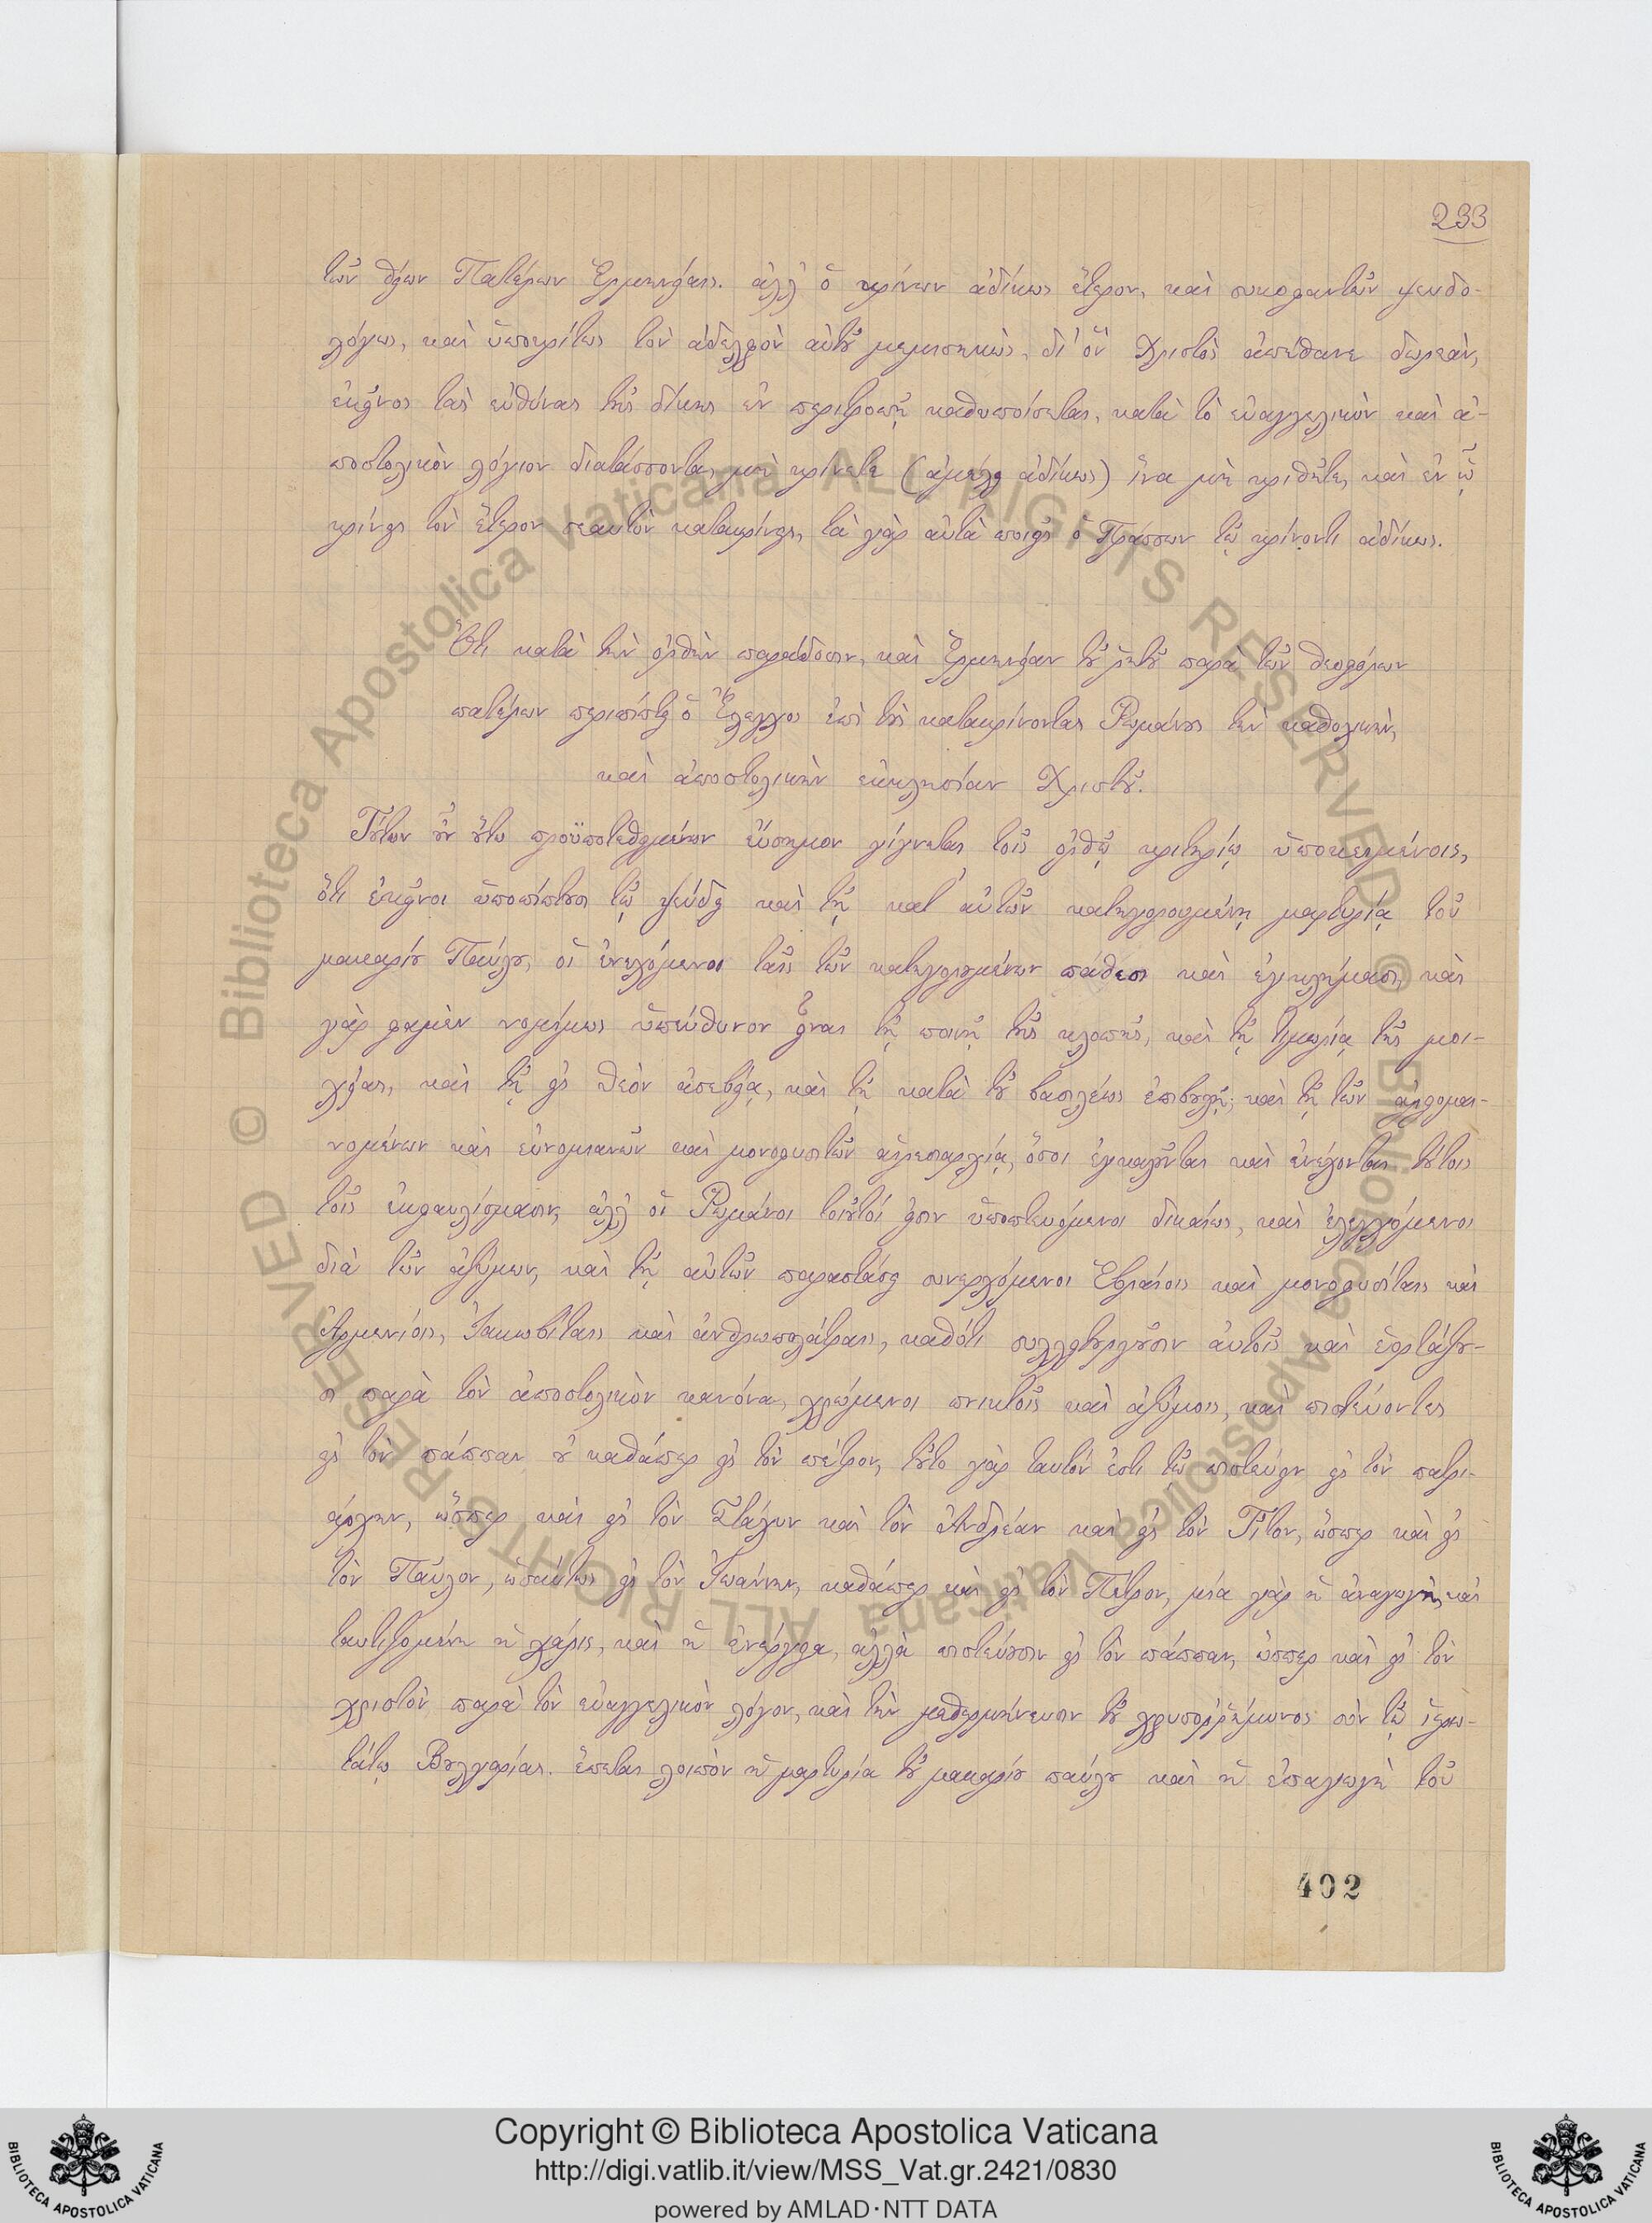 233
τῶν θείων Πατέρων Ἑρμηνείαις. ἀλλ' ὁ κρίνων ἀδίκως ἕτερον, καὶ συκοφαντῶν ψευδο-
λόγως, καὶ ὑποκρίτως τὸν ἀδελφὸν αὐτοῦ μεμισηκὼς, δι' ὃν Χριστὸς ἀπέθανε δωρεὰν,
ἐκεῖνος τὰς εὐθύνας τῆς δίκης ἐν περιτροπῇ καθυποίσεται, κατὰ τὸ εὐαγγελικὸν καὶ ἀ-
ποστολικὸν λόγιον διατάσσονται, μὴ κρίνετε (ἀμέλει ἀδίκως) ἵνα μὴ κριθῆτε, καὶ ἐν ᾧ
κρίνεις τὸν ἕτερον σεαυτὸν κατακρίνεις, τὰ γὰρ αὐτὰ ποιεῖς ὁ Πράσσων τῷ κρίνοντι ἀδίκως.
Ὅτι κατὰ τὴν ὀρθὴν παράδοσιν, καὶ Ἑρμηνείαν τοῦ ῥητοῦ παρὰ τῶν θεολόγων
πατέρων περιπίπτει ὁ Ἔλεγχος ἐπὶ τοὺς κατακρίνοντας Ῥωμάνους τὴν καθολικὴν,
καὶ ἀποστολικὴν ἐκκλησίαν Χριστοῦ.
Τούτων οὖν οὕτω προϋποτεθειμένων εὔσημον γίγνεται τοῖς ὀρθῷ κριτηρίῳ ὑποκειμένοις,
ὅτι ἐκεῖνοι ὑποπίπτουσι τῷ ψεύδει καὶ τῇ κατ' αὐτῶν κατηγορουμένῃ μαρτυρίᾳ τοῦ
μακαρίου Παύλου, οἱ ἐνεχόμενοι ταῖς τῶν κατεγορουμένων πάθεσι καὶ ἐγκλήμασι, καὶ
γὰρ φαμὲν νομίμως ὑπεύθυνον εἶναι τῇ ποινῇ τῆς κλοπῆς, καὶ τῇ τιμωρίᾳ τῆς μοι-
χείας, καὶ τῇ εἰς θεὸν ἀσεβείᾳ, καὶ τῇ κατὰ τοῦ βασιλέως ἐπιβουλῇ, καὶ τῇ τῶν ἀρειομαι-
νομένων καὶ εὐνομιανῶν καὶ μονοφυσιτῶν αἱρεσιαρχίᾳ, ὅσοι ἐγκαλοῦνται καὶ ἐνέχονται τούτοις
τοῖς ἐκφαυλίσμασιν, ἀλλ' οἱ Ῥωμάνοι τοιοῦτοί εἰσιν ὑποπτευόμενοι δικαίως, καὶ ἐλεγχόμενοι
διὰ τῶν ἀζύμων, καὶ τῇ αὐτῶν παραστάσει συνερχόμενοι Ἑβραίοις καὶ μονοφυσίταις καὶ
Ἀρμενίοις, Ἰακωβίταις καὶ ἀνθρωπολάτραις, καθότι συλλειτουργοῦσιν αὐτοῖς καὶ ἑορτάζου-
σι παρὰ τὸν ἀποστολικὸν κανόνα, χρώμενοι πνικτοῖς καὶ ἀζύμοις, καὶ πιστεύοντες
εἰς τὸν πάππαν οὐ καθάπερ εἰς τὸν πέτρον, τοῦτο γὰρ ταυτόν ἐστι τῷ πιστεύειν εἰς τὸν πατρι-
άρχην, ὥσπερ καὶ εἰς τὸν Στάχυν καὶ τὸν Ἀνδρέαν καὶ εἰς τὸν Τίτον, ὥσπερ καὶ εἰς
τὸν Παῦλον, ὡσαύτως εἰς τὸν Ἰωάννην, καθάπερ καὶ εἰς τὸν Πέτρον, μία γὰρ ἡ ἀναγωγὴ, καὶ
ταυτιζομένη ἡ χάρις, καὶ ἡ ἐνέργεια, ἀλλὰ πιστεύουσιν εἰς τὸν πάππαν, ὥσπερ καὶ εἰς τὸν
χριστὸν, παρὰ τὸν εὐαγγελικὸν λόγον, καὶ τὴν μεθερμήνευσιν τοῦ χρυσορρήμονος σὺν τῷ ἱερω-
τάτῳ Βουλγαρίας. ἕπεται λοιπὸν ἡ μαρτυρία τοῦ μακαρίου παύλου καὶ ἡ ἐπαγωγὴ τοῦ
402
Copyright © Biblioteca Apostolica Vaticana
http://digi.vatlib.it/view/MSS_Vat.gr.2421/0830
powered by AMLAD·NTT DATA
BIBLIOTECA APOSTOLICA VATICANA
BIBLIOTECA APOSTOLICA VATICANA
© Biblioteca Apostolica Vaticana ALL RIGHTS RESERVED
© Biblioteca Apostolica Vaticana ALL RIGHTS RESERVED